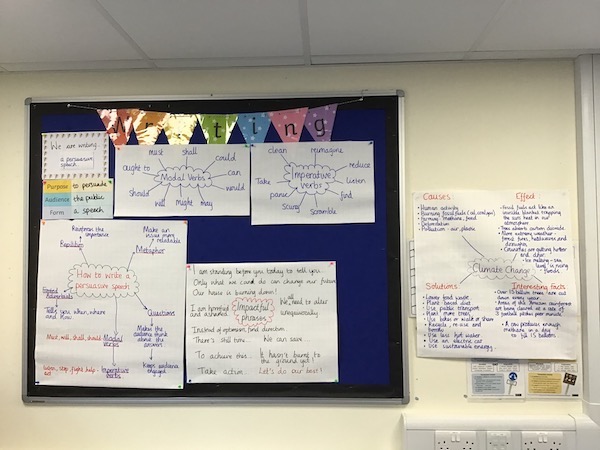 Writing
We are writing
a persuasive
speech.
Purpose to persuade
Audience the public
Form a speech
must
shall
could
ought to
Modal Verbs
can
would
should
will
might
may
clean
reimagine
reduce
Take
Imperative
verbs
listen
panic
find
scurry
scramble
Reinforces the
importance
Make an
issue more
relatable
Repetition
Metaphor
How to write a
persuasive speech
Tells you when, where
and how.
Questions
Makes the
audience think
about the
answers
Must, will, shall, should
Modal
verbs
Imperative
verbs
Keeps audience
engaged
I am standing before you today to tell you...
Only we can change our future
Our house is burning down!
I am horrified
and ashamed
Impactful
phrases
We all need to alter
Instead of optimism find direction
There's still time...
We can save
To achieve this...
It hasn't burnt to
the ground yet!
Take action.
Let's do our best!
Causes:
Human activity
Burning fossil fuels (oil, coal, gas)
Farming, methane, food
Deforestation
Pollution - air plane
Effect
fossil fuels act like an
invisible blanket trapping
the sun heat in our
atmosphere.
Trees absorb carbon dioxide
More extreme weather -
forest fires, hurricanes and
droughts
Countries are getting hotter
and drier
Ice melting - sea
level is rising
- floods
Climate Change
Solutions:
Lower food waste
Plant based diet
Use public transport
Plant more trees
Use bikes or walk or share
Recycle, re use and
Use less hot water
Use an electric car
Use sustainable energy.
Interesting facts
Over 15 billion trees are cut
down every year
Areas of the Amazon rainforest
are being cleared at a rate of
3 football pitches per minute
A cow produces enough
methane each day
to fill 15 balloons.